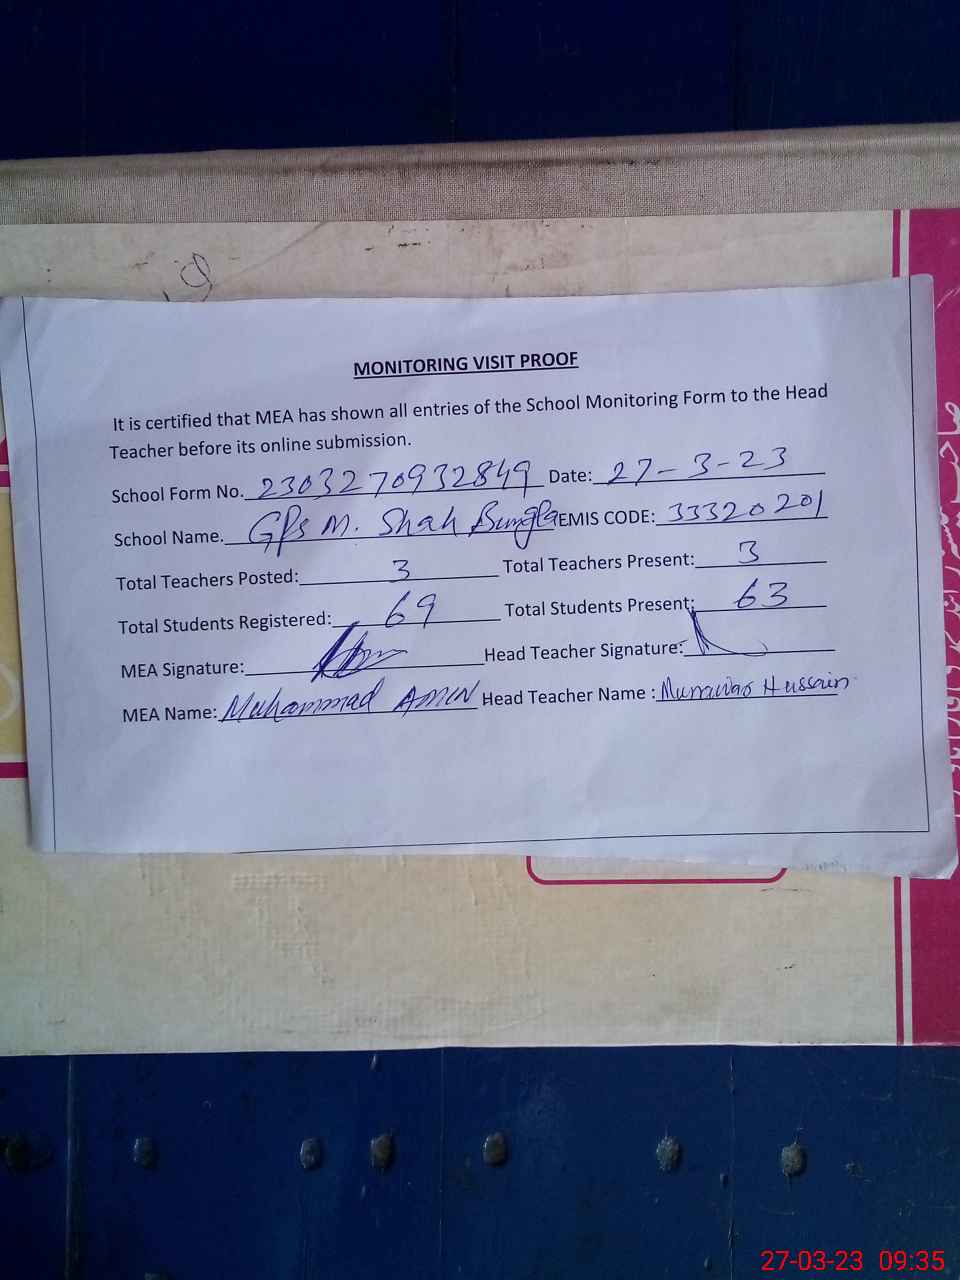 MONITORING VISIT PROOF
It is certified that MEA has shown all entries of the School Monitoring Form to the Head
Teacher before its online submission.
School Form No. 2303270932849 Date: 27-3-23
School Name. GPs M. Shah Bungla EMIS CODE: 33320201
Total Teachers Posted: 3 Total Teachers Present: 3
Total Students Registered: 69 Total Students Present: 63
MEA Signature: Head Teacher Signature:
MEA Name: Muhammad AMIN Head Teacher Name : Munawar Hussain
27-03-23 09:35